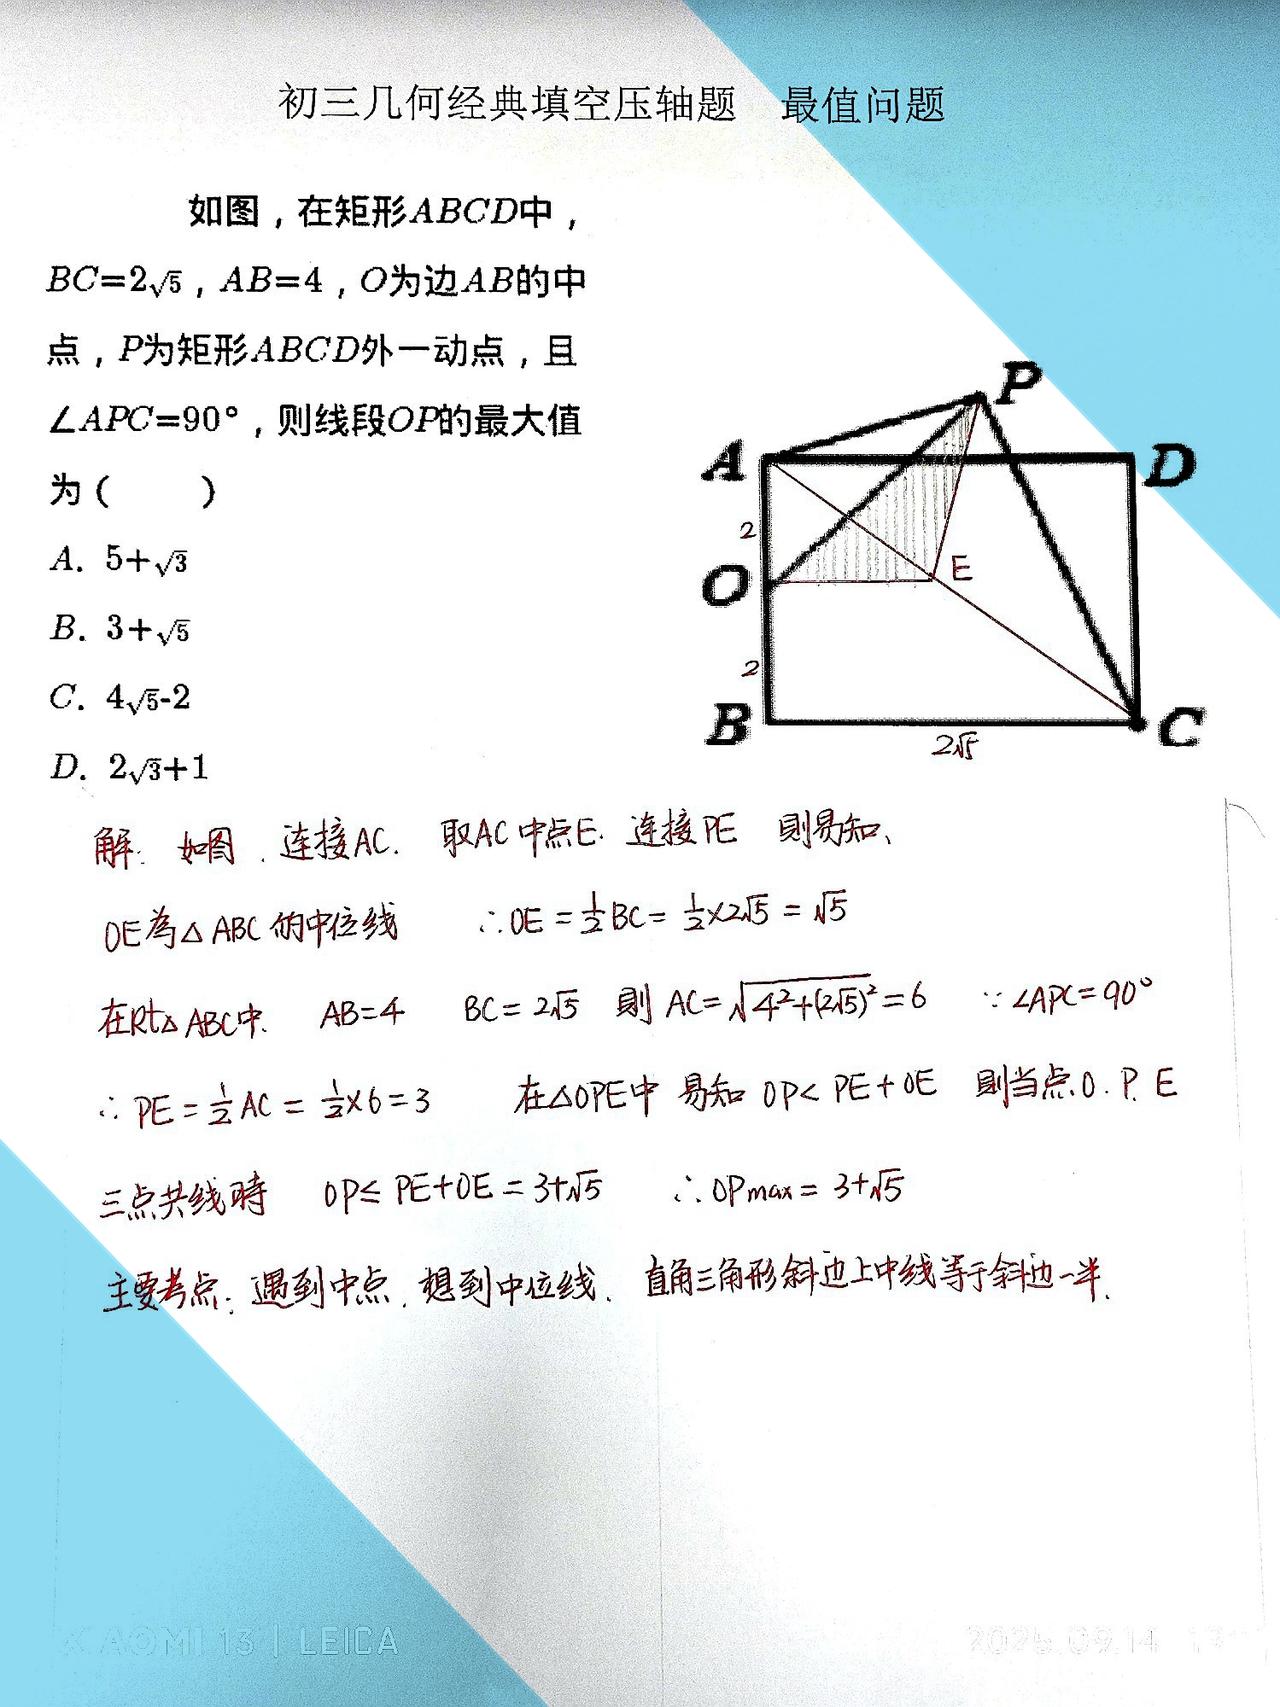 初三几何经典填空压轴题 最值问题
如图，在矩形ABCD中，
BC=2√5，AB=4，O为边AB的中
点，P为矩形ABCD外一动点，且
∠APC=90°，则线段OP的最大值
为（ ）
A. 5+√3
B. 3+√5
C. 4√5-2
D. 2√3+1
P
A
D
2
O
E
2
B
C
2√5
解: 如图. 连接AC. 取AC中点E. 连接PE 則易知、
OE為△ABC的中位线 ∴OE=½BC=½×2√5=√5
在Rt△ABC中. AB=4 BC=2√5 則 AC=√4²+(2√5)²=6 ∵∠APC=90°
∴PE=½AC=½×6=3 在△OPE中 易知 OP<PE+OE 則当点O.P.E
三点共线時 OP≤PE+OE=3+√5 ∴OPmax=3+√5
主要考点: 遇到中点. 想到中位线. 直角三角形斜边上中线等于斜边一半.
XIAOMI 13 | LEICA
2025.09.14